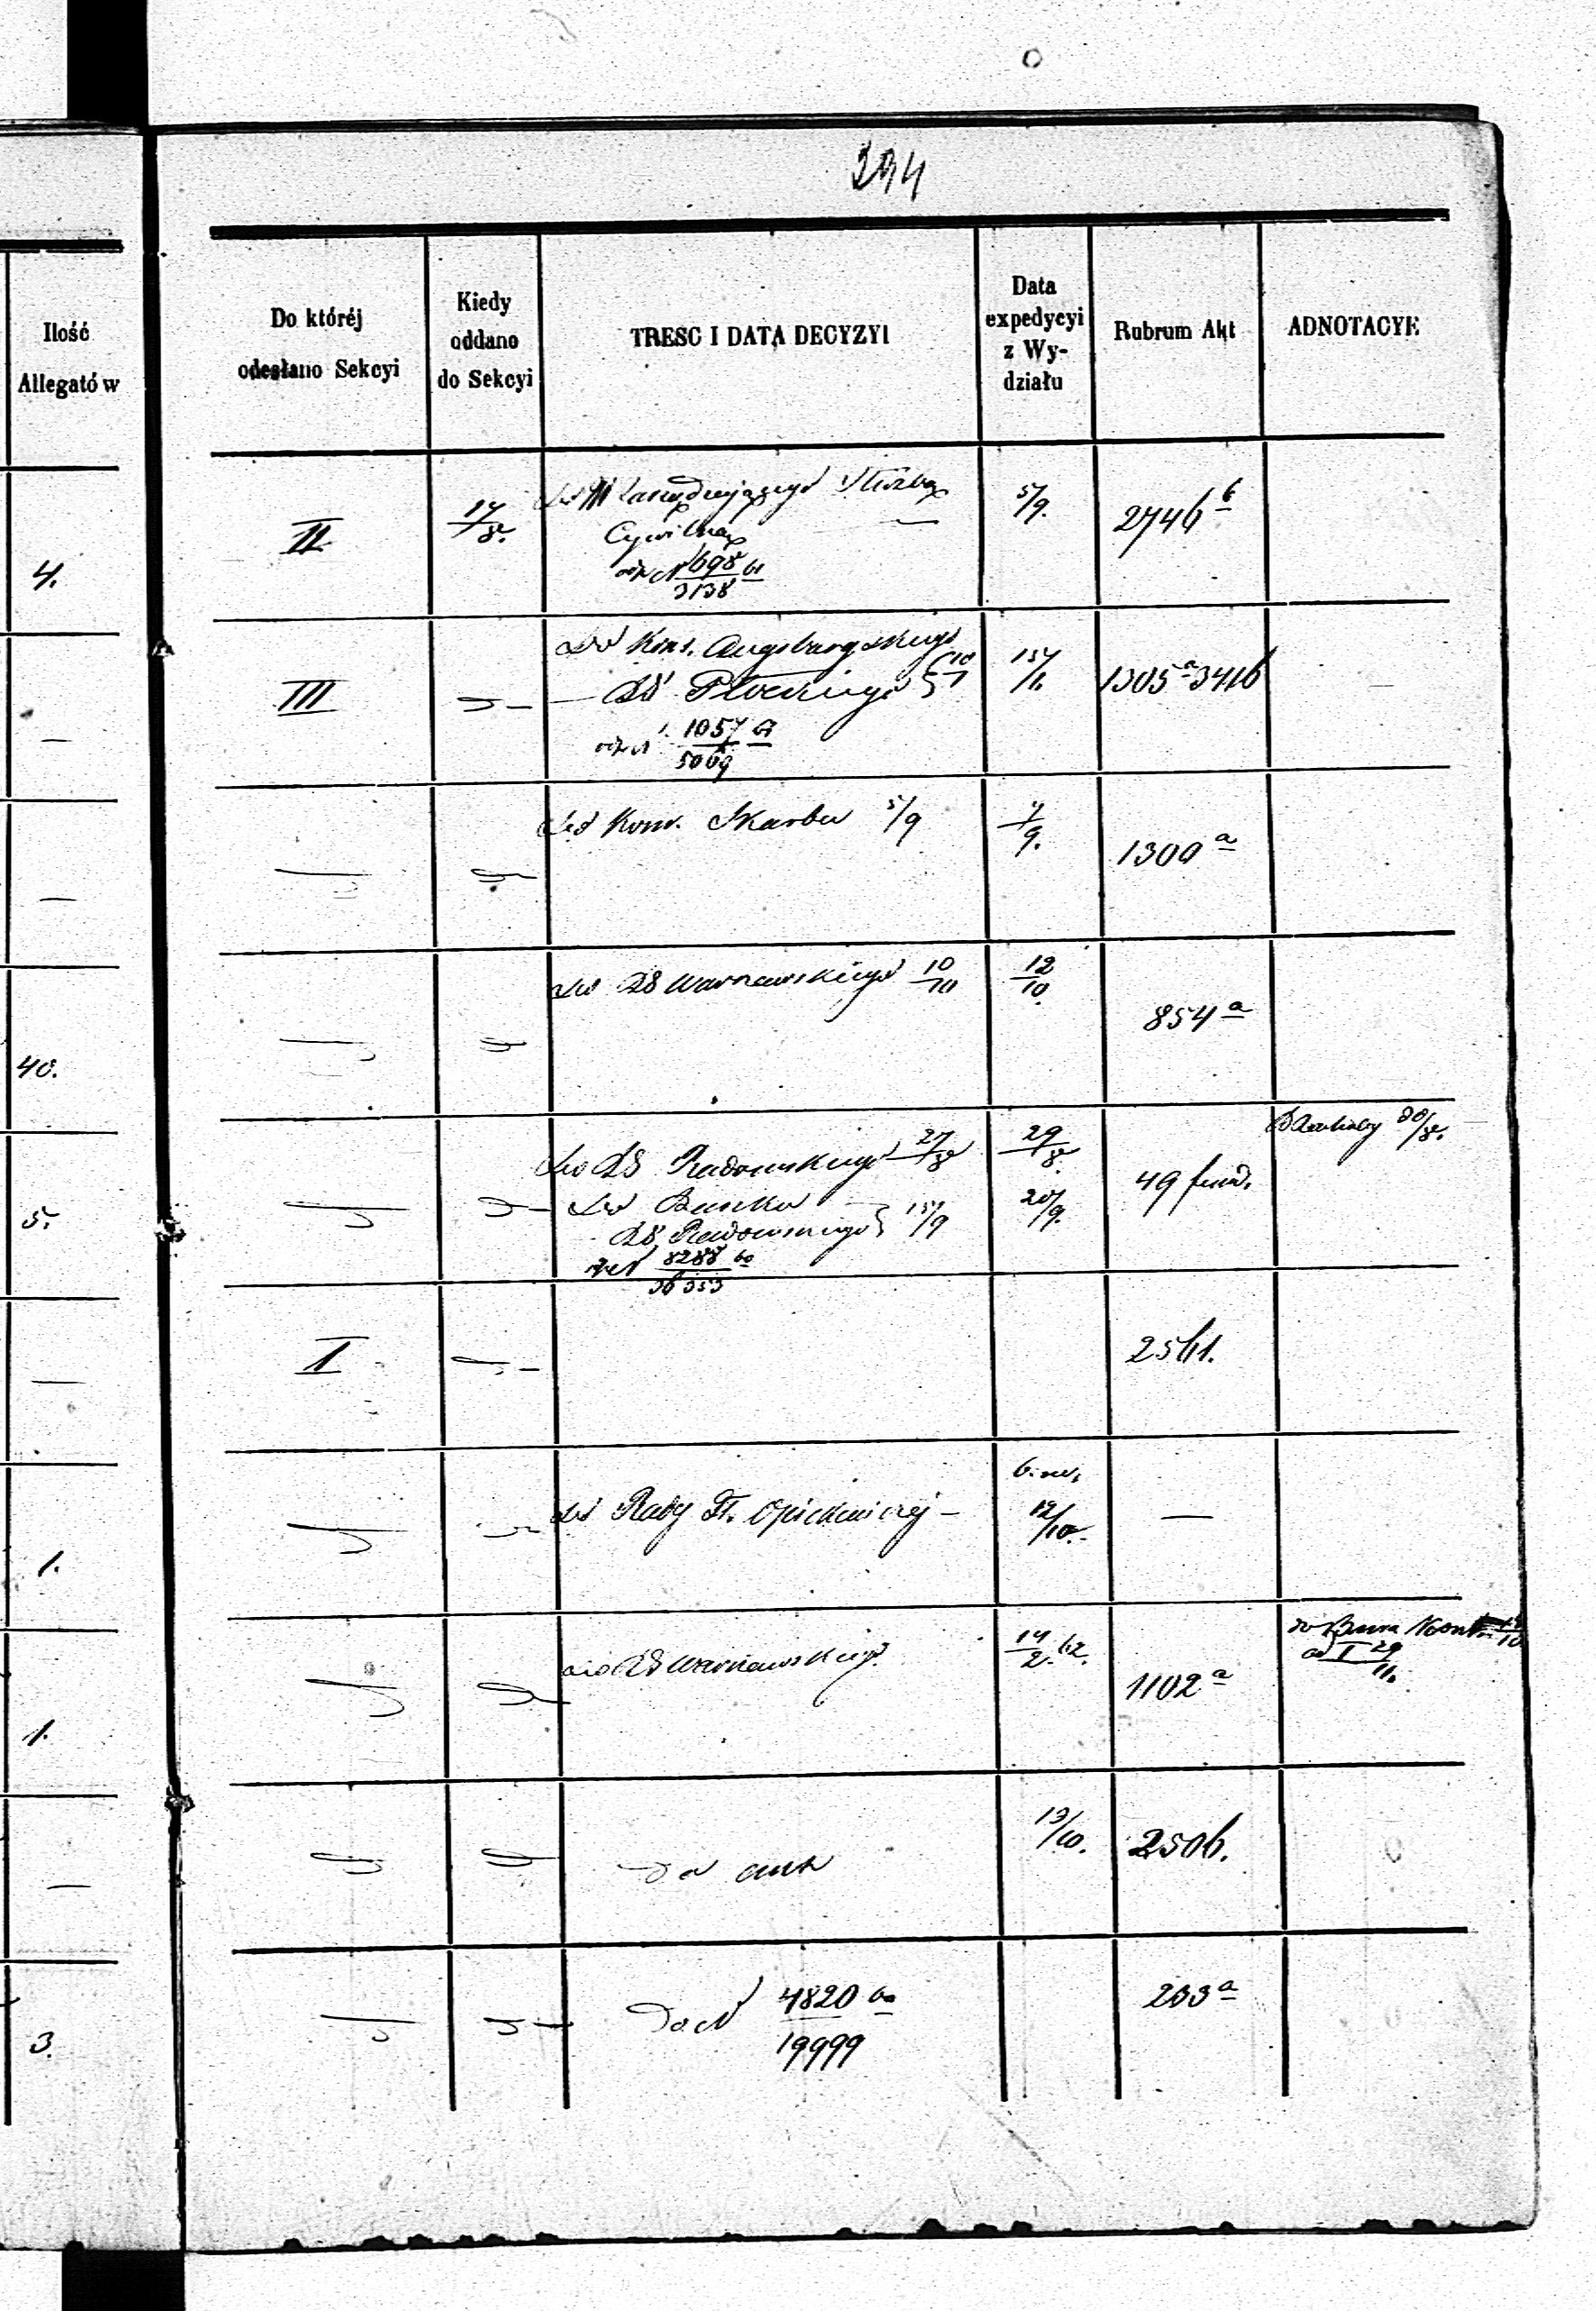 294
Ilość
Allegatów
Do któréj
odesłano Sekcyi
Kiedy
oddano
do Sekcyi
TRESC I DATA DECYZYI
Data
expedycyi
z Wy-
działu
Rubrum Akt
ADNOTACYE
4.
II
17/8.
Cywilną
698
3138
5/9.
2746 b
—
III
Do Kons. Augsburgskiego
— DS Płockiego
1057
5069
15/11.
1305 a 3416
—
Do Kom. Skarbu 5/9
7/9.
1300 a
40.
DS Warszawskiego 10/10
12/10.
854 a
5.
Do DS Radomskiego 27/8
Do Banku
DS Radomskiego } 15/9
8288
36353
29/8.
20/9.
49 fund.
30/8.
—
I
2561.
1.
Do Rady Fł. Opiekuńczej —
12/10.
—
1.
DS Warszawskiego
14/2. 62.
1102 a
do Biura
ad I 29/11.
—
Do akt
13/10.
2506.
3.
Do N 4820
19999
233 a